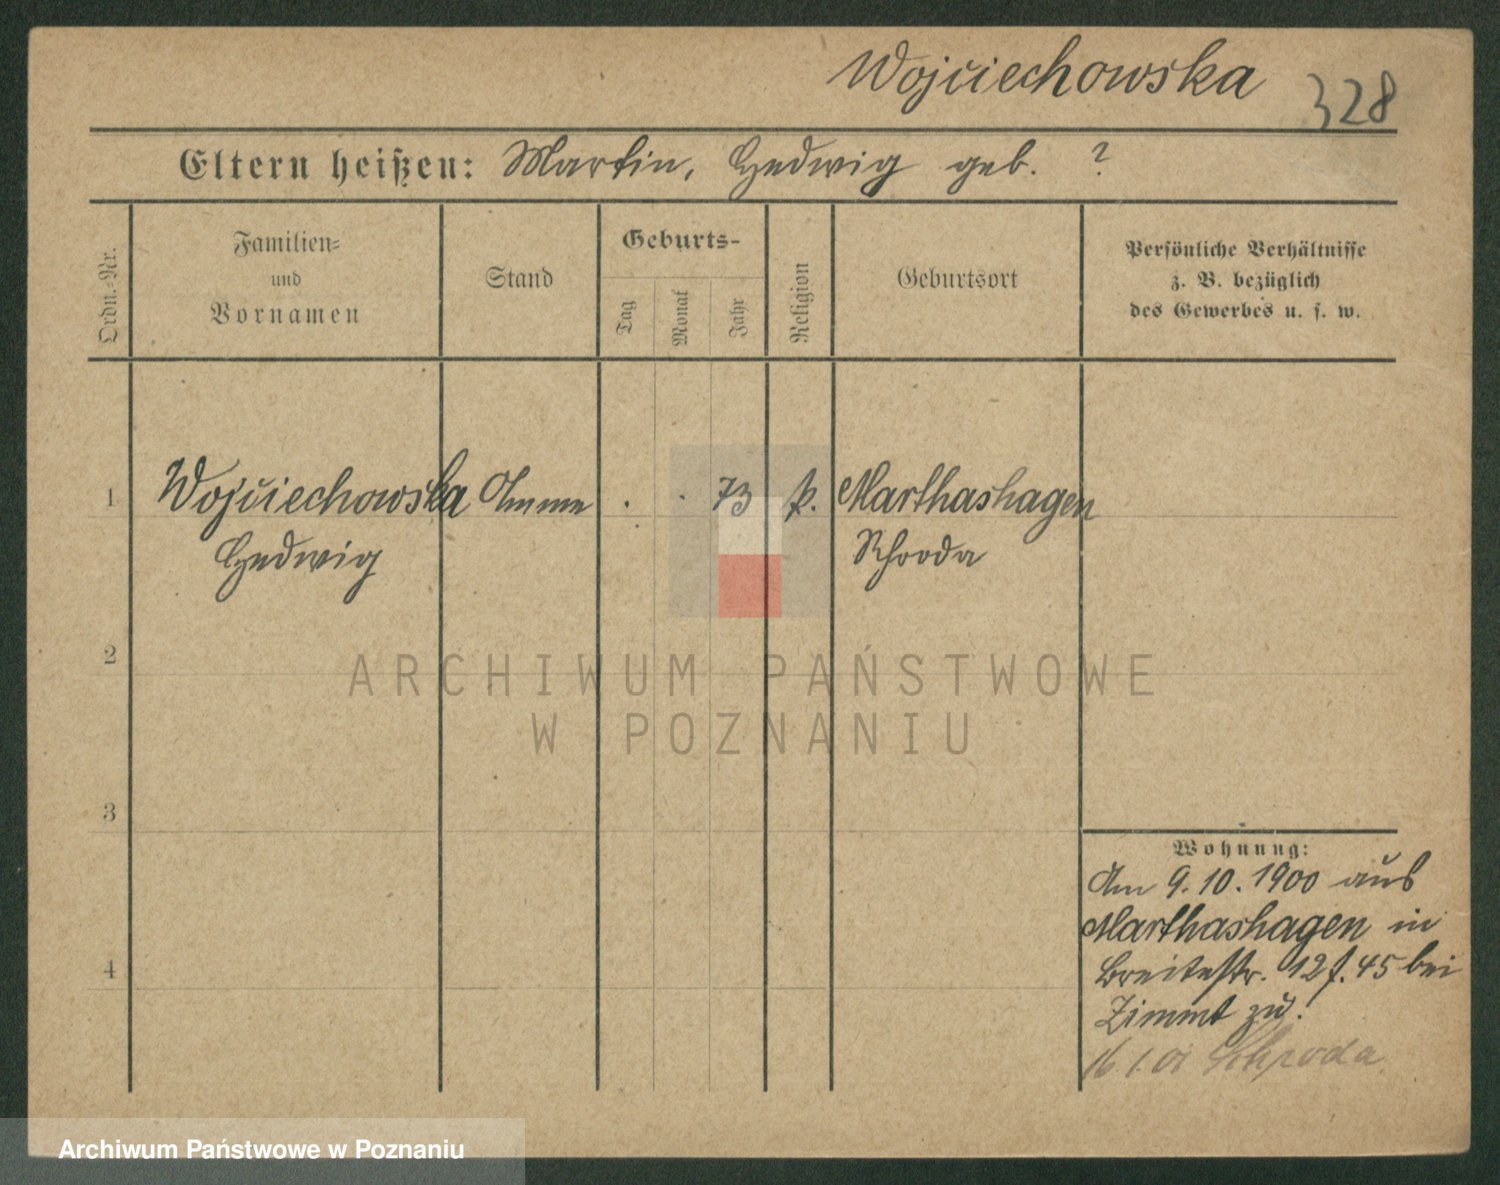 Wojciechowska 328
Eltern heißen: Martin, Hedwig geb. ?
Ordn.-Nr.
Familien-
und
Vornamen
Stand
Geburts-
Tag
Monat
Jahr
Religion
Geburtsort
Persönliche Verhältnisse
z. B. bezüglich
des Gewerbes u. s. w.
1 Wojciechowska Amme . . 73 k. Marthashagen
Hedwig Schroda
2
ARCHIWUM PAŃSTWOWE
W POZNANIU
3
Wohnung:
Am 9.10.1900 aus
Marthashagen in
4 Breitestr. 12 f. 45 bei
Zimmt zu.
16.1.01 Schroda
Archiwum Państwowe w Poznaniu